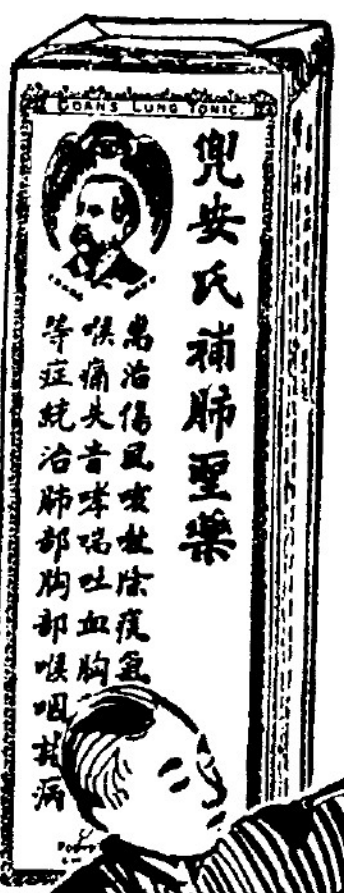 DOAN'S LUNG TONIC.
兜安氏補肺聖藥
治傷風咳杜除痰氣
喉痛失音哮喘吐血胸
等症統治肺部胸部喉咽諸病